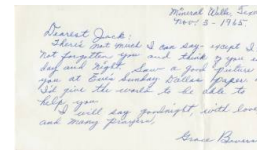 Mineral Wells, Texas
Nov. 3 - 1965
Dearest Jack:
There's not much I can say - except I
not forgotten you and think of you
day and night. Saw a good picture
you at Sunday Dallas paper.
I'd give the world to be able to
help you.
I will say goodnight, with love
and many prayers.
Grace